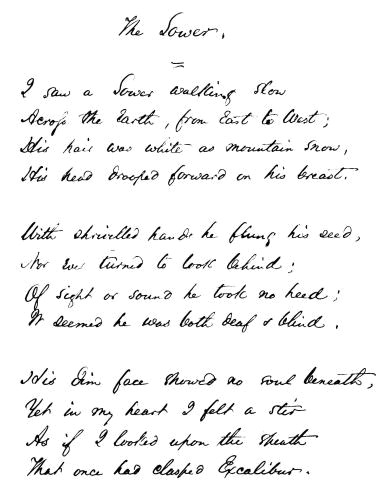 The Sower.
I saw a Sower walking slow
Across the Earth, from East to West;
His hair was white as mountain snow,
His head drooped forward on his breast.
With shrivelled hands he flung his seed,
Nor ever turned to look behind;
Of sight or sound he took no heed;
It seemed he was both deaf & blind.
His dim face showed no soul beneath,
Yet in my heart I felt a stir
As if I looked upon the sheath
That once had clasped Excalibur.